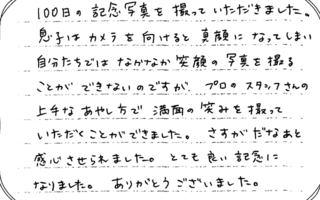 100日の記念写真を撮っていただきました。
息子はカメラを向けると真顔になってしまい
自分たちではなかなか笑顔の写真を撮る
ことができないのですが、プロのスタッフさんの
上手なあやし方で満面の笑みを撮って
いただくことができました。さすがだなあと
感心させられました。とても良い記念に
なりました。ありがとうございました。